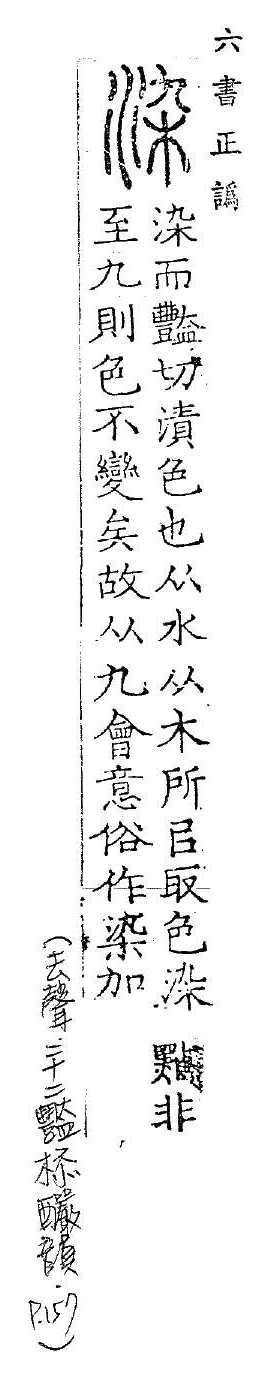 六書正譌
染
染而豔切漬色也从水从木所㠯取色染
至九則色不變矣故从九會意俗作染加
點非
(去聲·二十二豔桥釅韻·P.157)